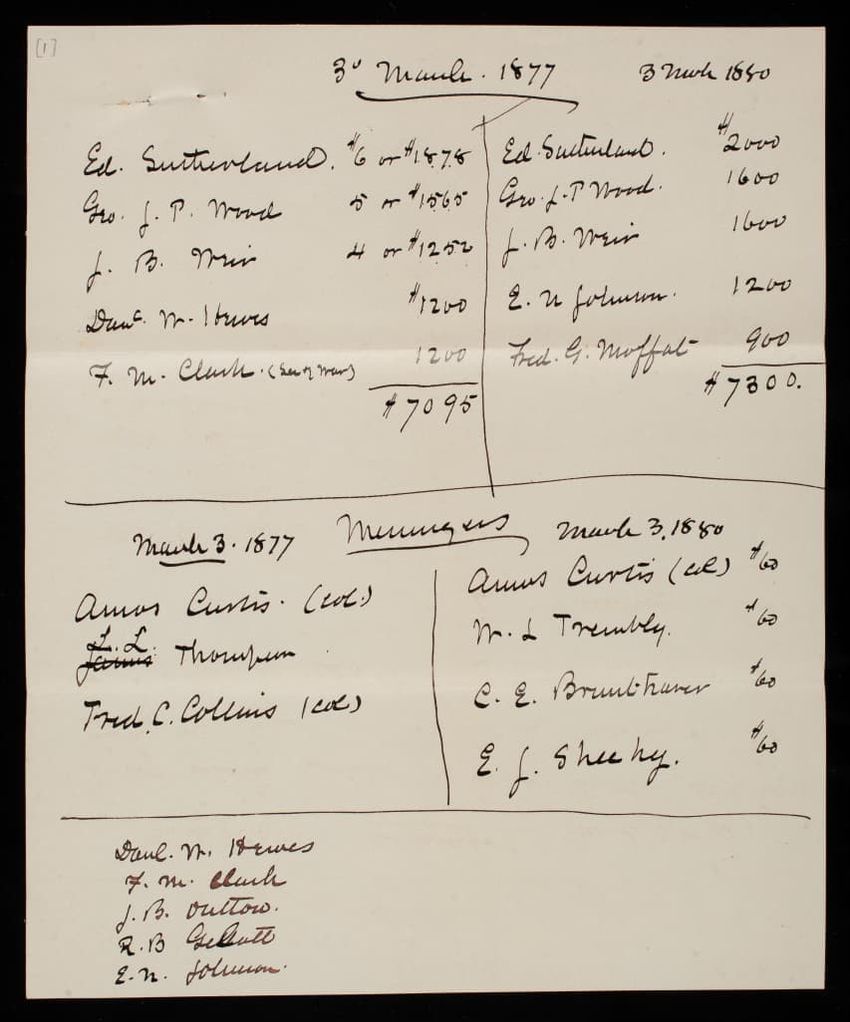 [1]
3d March. 1877
3 March 1880
Ed. Sutherland. $6 or $1878
Geo. J. P. Wood 5 or $1565
J. B. Weir 4 or $1252
Danl. W. Hewes $1200
F. M. Clark. (Sec of War) 1200
$7095
Ed. Sutherland. $2000
Geo. J. P Wood. 1600
J. B. Weir 1600
E. N Johnson. 1200
Fred. G. Moffat 900
$7300.
Messengers
March 3. 1877
Amos Curtis. (col.)
L. L.
James Thompson
Fred. C. Collins (col)
March 3, 1880
Amos Curtis (col) $60
W. L Trembly. $60
C. E. $60
E. J. Sheehy. $60
Danl. W. Hewes
F. M. Clark
J. B. Outtow.
R. B
E. N. Johnson.